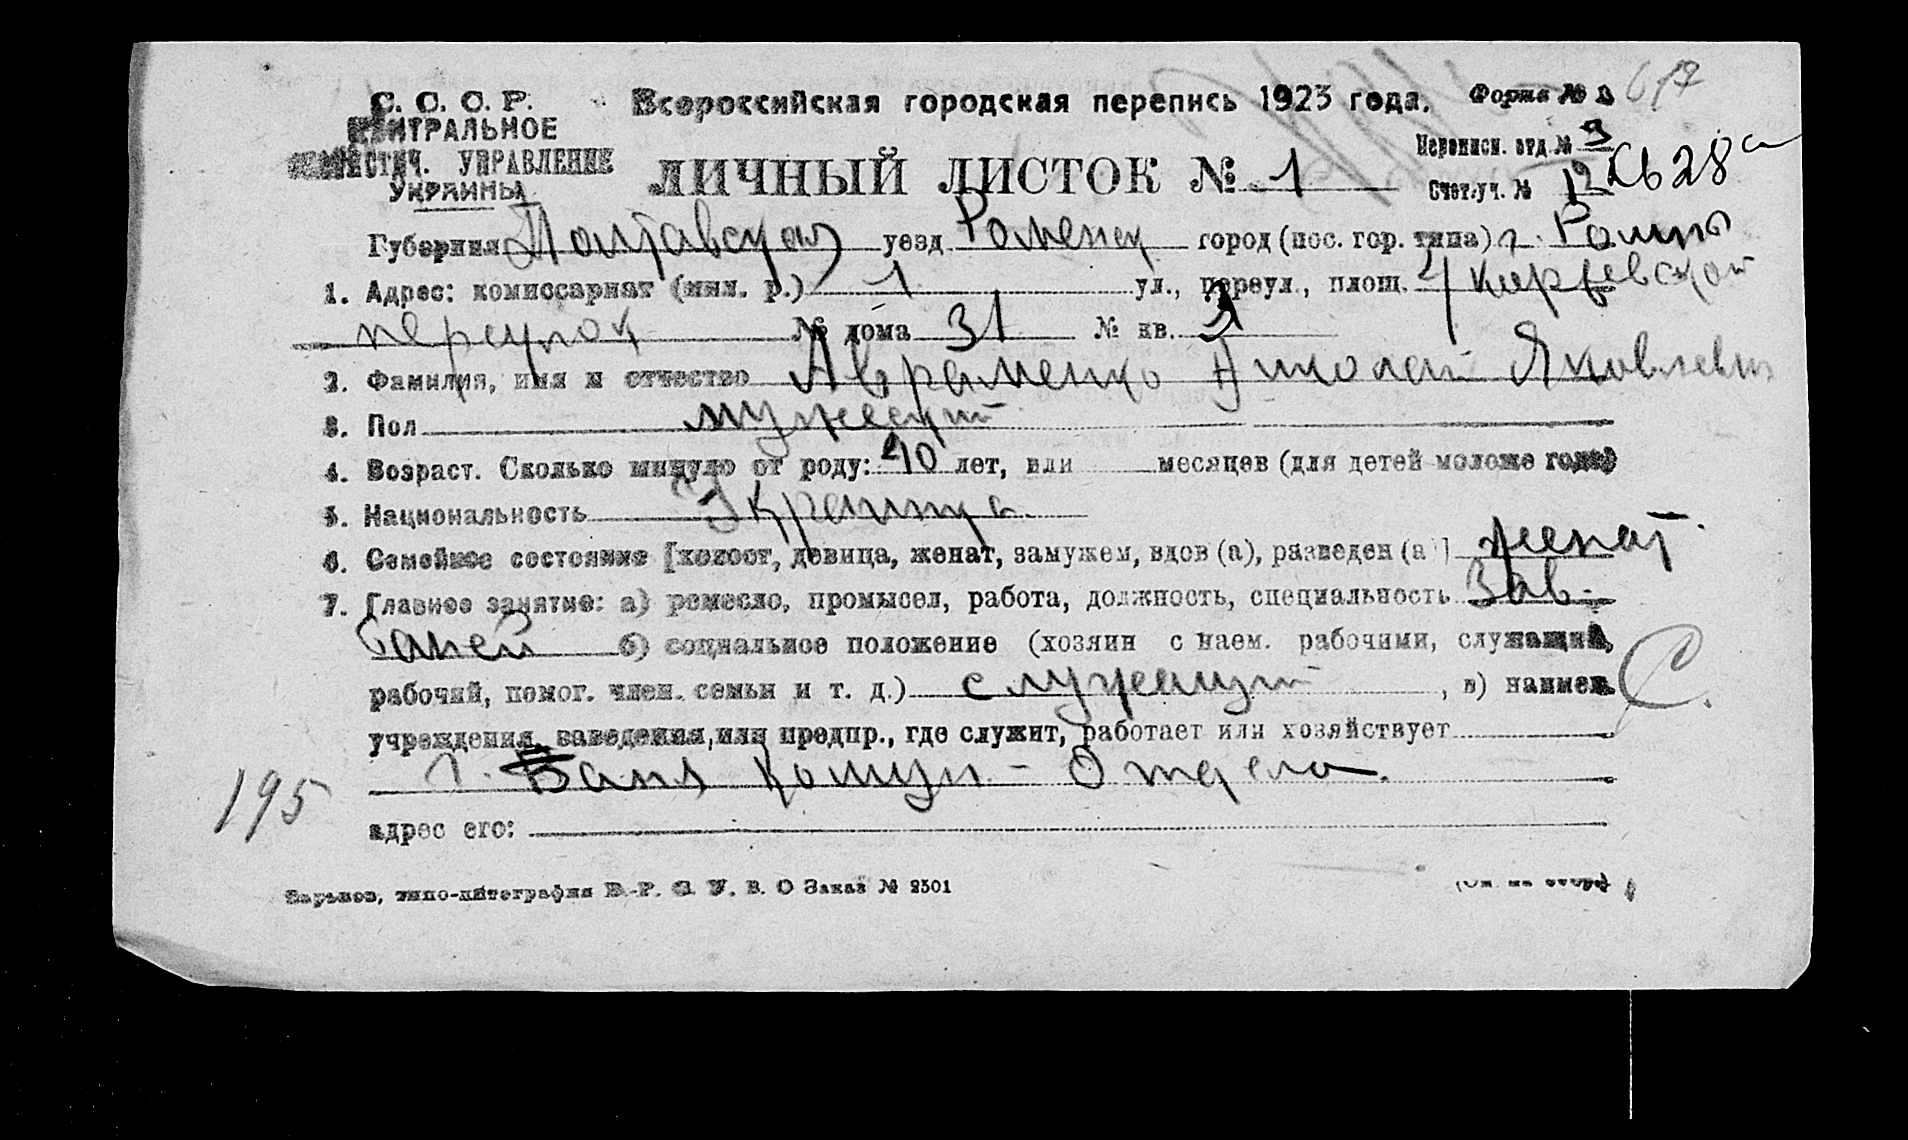 617
С. С. С. Р.
ЦЕНТРАЛЬНОЕ
СТАТИСТИЧ. УПРАВЛЕНИЕ
УКРАИНЫ
Всероссийская городская перепись 1923 года.
Форма №
ЛИЧНЫЙ ЛИСТОК № 1
Переписн. отд. № 3
Счет. уч. № 12 628а
Губерния Полтавская уезд Роменск город (пос. гор. типа) г. Ромны
1. Адрес: комиссариат (мил. р.) 1 ул., переул., площ.
переулок № дома 31 № кв. 1
2. Фамилия, имя и отчество Авраменко Николай Яковлевич
3. Пол мужеский
4. Возраст. Сколько минуло от роду: 40 лет, или месяцев (для детей моложе года)
5. Национальность Украинец
6. Семейное состояние [холост, девица, женат, замужем, вдов (а), разведен (а)] женат.
7. Главное занятие: а) ремесло, промысел, работа, должность, специальность Зав.
баней б) социальное положение (хозяин с наем. рабочими, служащий,
рабочий, помог. член. семьи и т. д.) служащий, в) наимен. С.
учреждения, заведения, или предпр., где служит, работает или хозяйствует
Баня Комун-Отдела.
195
адрес его:
Харьков, типо-литография В.-Р. С. У. В. О Заказ № 2501
(См. на обор.)